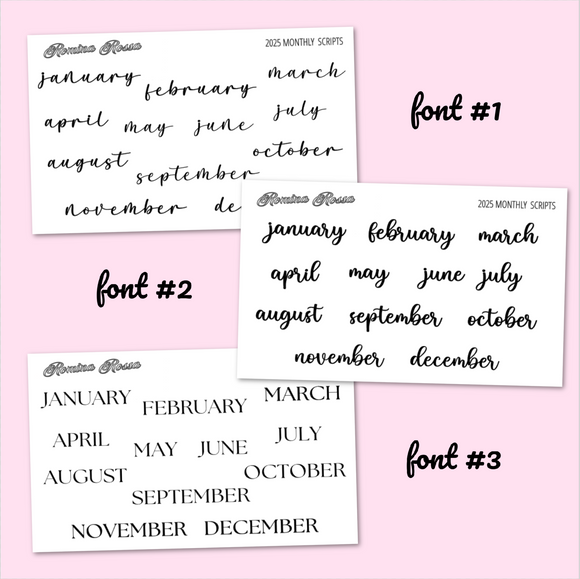 Romina Rossa
2025 MONTHLY SCRIPTS
january february march
april may june july
august september october
november de
font #1
Romina Rossa
2025 MONTHLY SCRIPTS
january february march
april may june july
august september october
november december
font #2
Romina Rossa
JANUARY FEBRUARY MARCH
APRIL MAY JUNE JULY
AUGUST OCTOBER
SEPTEMBER
NOVEMBER DECEMBER
font #3